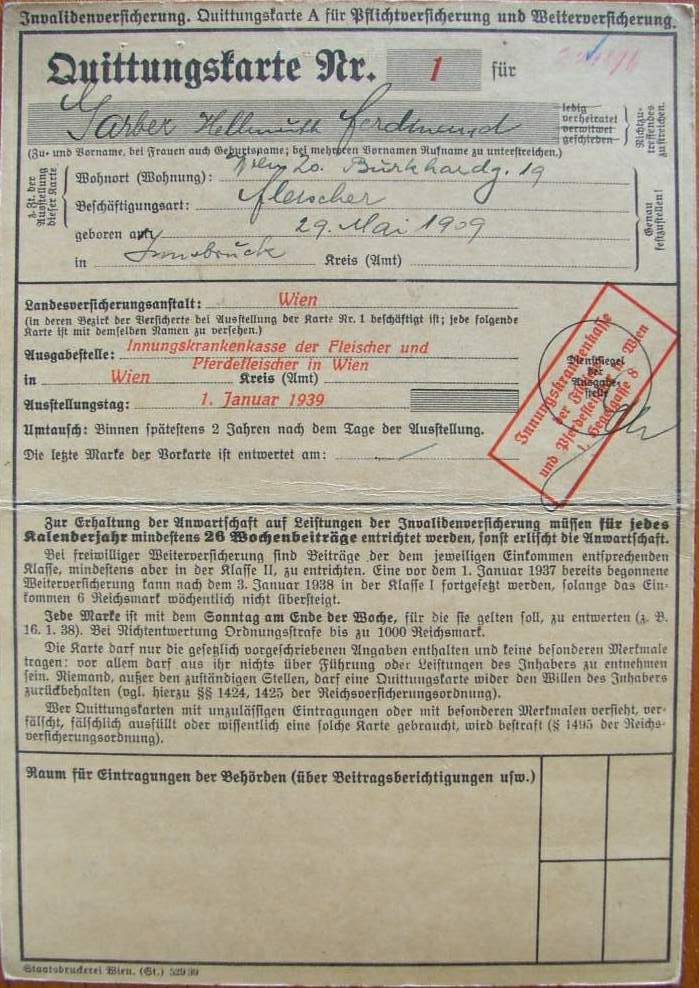 Invalidenversicherung. Quittungskarte A für Pflichtversicherung und Weiterversicherung.
Quittungskarte Nr. 1 für
Garber Hellmuth Ferdinand
ledig
verheiratet
verwitwet
geschieden
Nichtzu-
treffendes
zu streichen.
(Zu- und Vorname, bei Frauen auch Geburtsname; bei mehreren Vornamen Rufname zu unterstreichen.)
z. Zt. der
Ausstellung
dieser Karte
Wohnort (Wohnung): Wien 20. Burkhardg. 19
Beschäftigungsart: Fleischer
geboren am: 29. Mai 1909
in Innsbruck Kreis (Amt)
Genau
festzustellen!
Landesversicherungsanstalt: Wien
(in deren Bezirk der Versicherte bei Ausstellung der Karte Nr. 1 beschäftigt ist; jede folgende
Karte ist mit demselben Namen zu versehen.)
Ausgabestelle: Innungskrankenkasse der Fleischer und
Pferdefleischer in Wien
in Wien Kreis (Amt)
Ausstellungstag: 1. Januar 1939
Umtausch: Binnen spätestens 2 Jahren nach dem Tage der Ausstellung.
Die letzte Marke der Vorkarte ist entwertet am:
Dienstsiegel
der
Ausgabe-
stelle
Innungskrankenkasse
der Fleischer
und Pferdefleischer in Wien
8
Zur Erhaltung der Anwartschaft auf Leistungen der Invalidenversicherung müssen für jedes
Kalenderjahr mindestens 26 Wochenbeiträge entrichtet werden, sonst erlischt die Anwartschaft.
Bei freiwilliger Weiterversicherung sind Beiträge der dem jeweiligen Einkommen entsprechenden
Klasse, mindestens aber in der Klasse II, zu entrichten. Eine vor dem 1. Januar 1937 bereits begonnene
Weiterversicherung kann nach dem 3. Januar 1938 in der Klasse I fortgesetzt werden, solange das Ein-
kommen 6 Reichsmark wöchentlich nicht übersteigt.
Jede Marke ist mit dem Sonntag am Ende der Woche, für die sie gelten soll, zu entwerten (z. B.
16. 1. 38). Bei Nichtentwertung Ordnungsstrafe bis zu 1000 Reichsmark.
Die Karte darf nur die gesetzlich vorgeschriebenen Angaben enthalten und keine besonderen Merkmale
tragen: vor allem darf aus ihr nichts über Führung oder Leistungen des Inhabers zu entnehmen
sein. Niemand, außer den zuständigen Stellen, darf eine Quittungskarte wider den Willen des Inhabers
zurückbehalten (vgl. hierzu §§ 1424, 1425 der Reichsversicherungsordnung).
Wer Quittungskarten mit unzulässigen Eintragungen oder mit besonderen Merkmalen versieht, ver-
fälscht, fälschlich ausfüllt oder wissentlich eine solche Karte gebraucht, wird bestraft (§ 1495 der Reichs-
versicherungsordnung).
Raum für Eintragungen der Behörden (über Beitragsberichtigungen usw.)
Staatsdruckerei Wien. (St.) 529 39